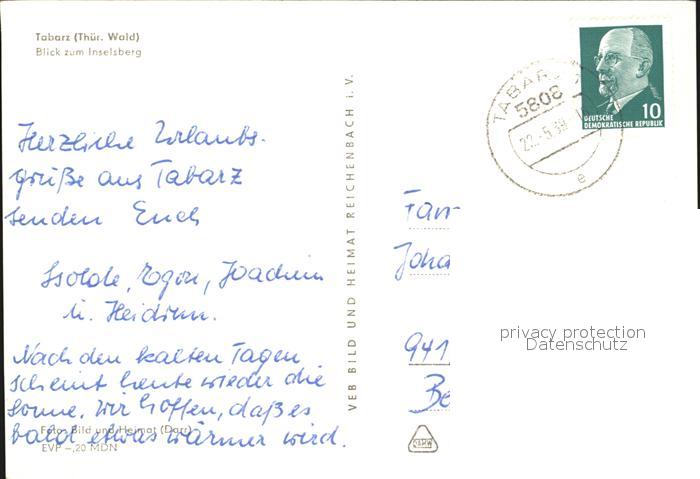 Tabarz (Thür. Wald)
Blick zum Inselsberg
DEUTSCHE
DEMOKRATISCHE REPUBLIK
10
TABARZ
5808
22.-5.69
e
Herzliche Urlaubs-
grüße aus Tabarz
senden Euch
Isolde, Egon, Joachim
u. Heidrun.
Nach den kalten Tagen
scheint heute wieder die
Sonne. Wir hoffen, daß es
bald etwas wärmer wird.
Foto: Bild und Heimat (Darr)
EVP -,20 MDN
VEB BILD UND HEIMAT REICHENBACH i. V.
Fam
Joha
941
Be
privacy protection
Datenschutz